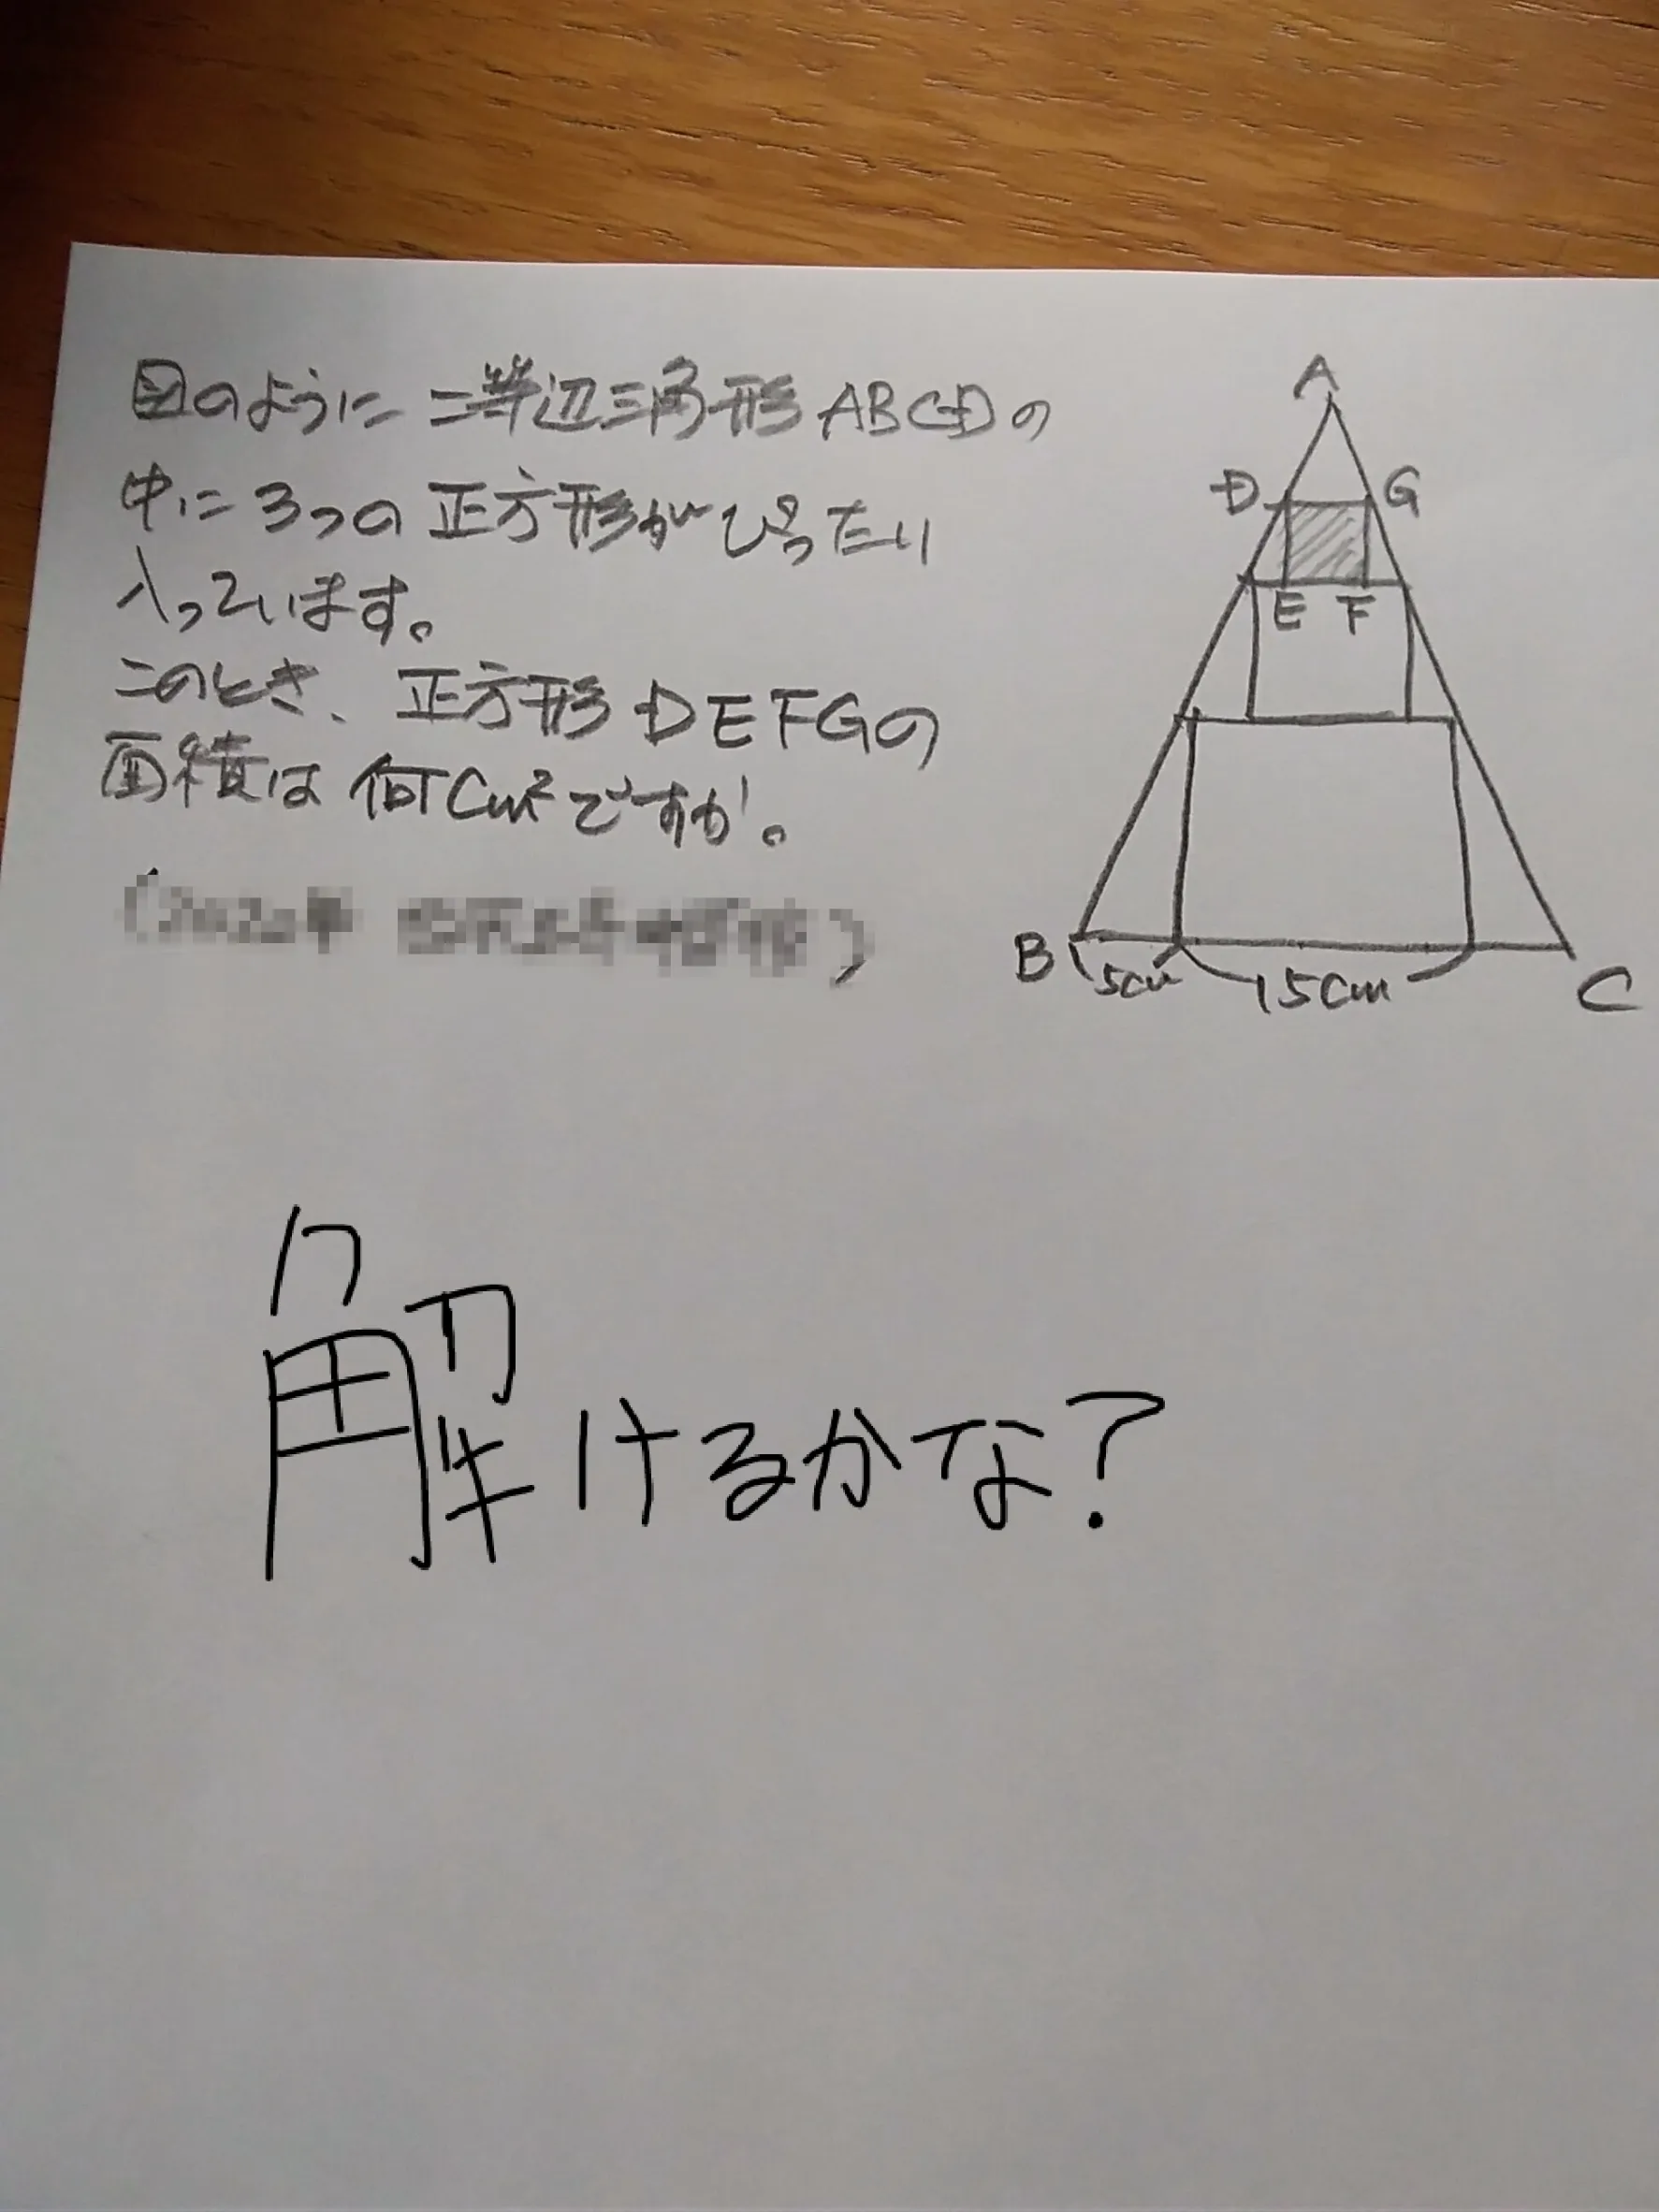 図のように二等辺三角形ABCDの
中に3つの正方形がぴったり
入っています。
このとき、正方形DEFGの
面積は何cm²ですか。
A
D
G
E F
B
5cm
15cm
C
解けるかな?